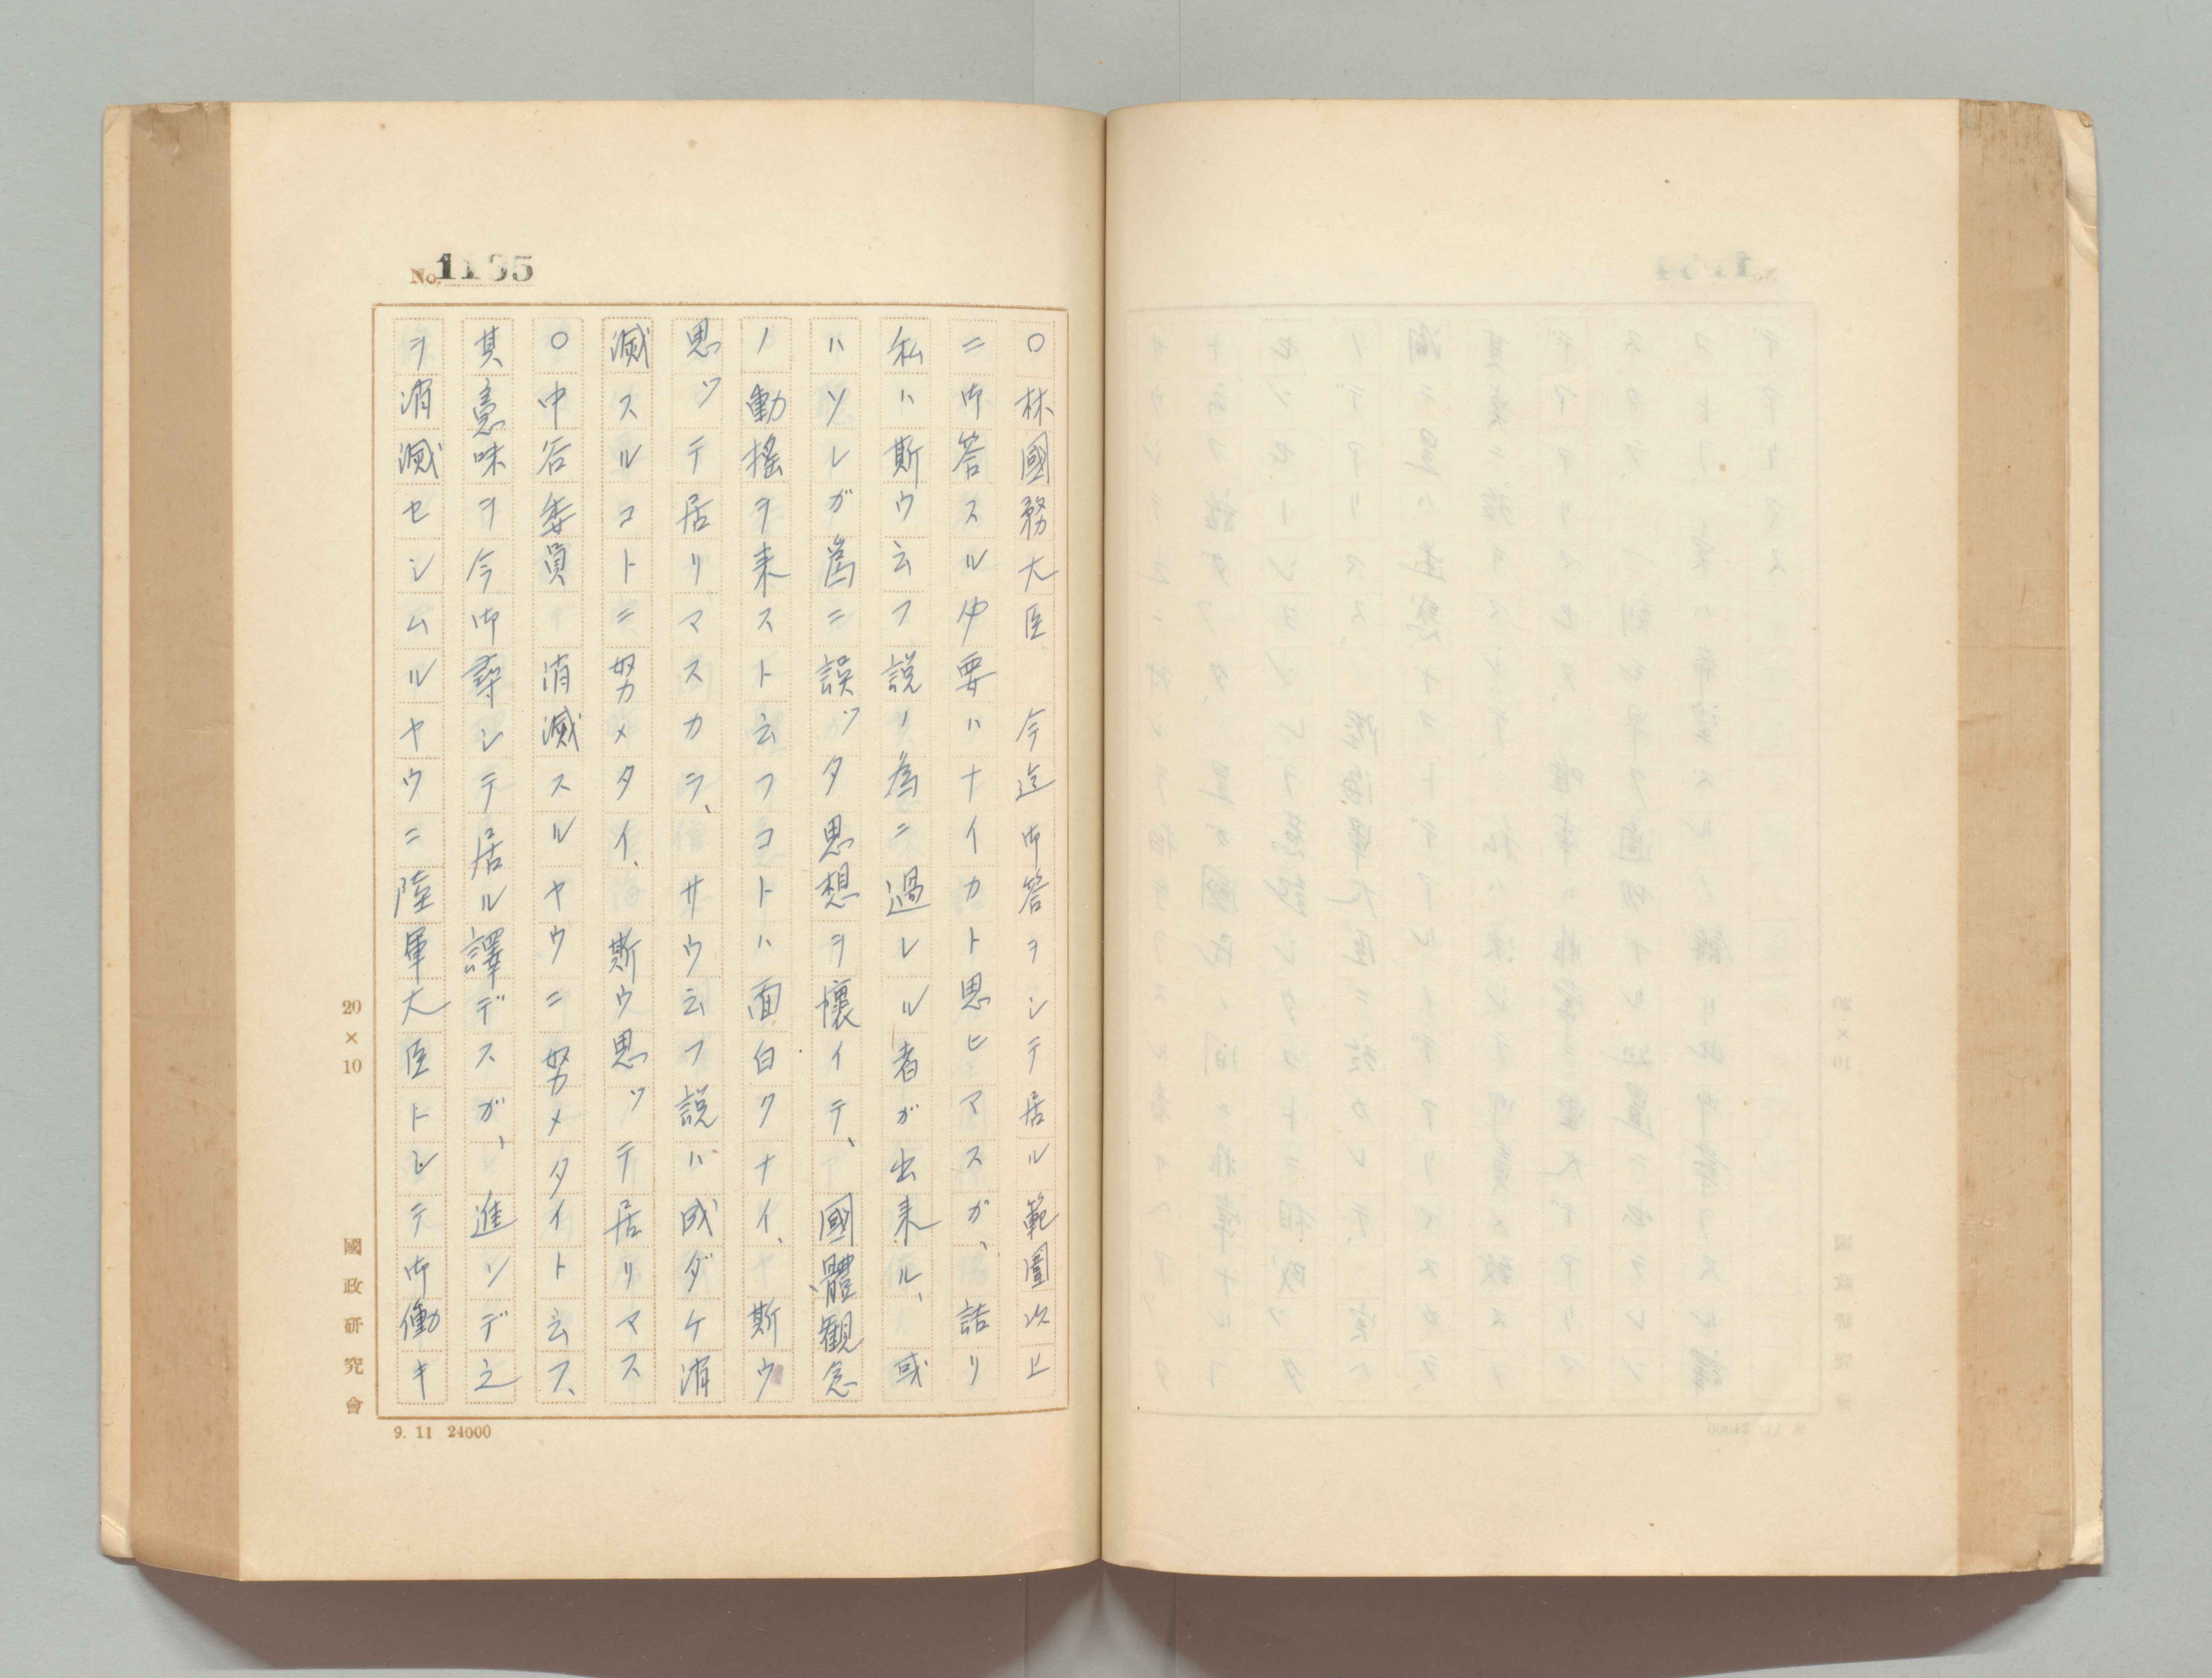 No. 1135
○林國務大臣　今迄御答ヲシテ居ル範圍以上
ニ御答スル必要ハナイカト思ヒマスガ、詰リ
私ハ斯ウ云フ説ノ為ニ過レル者ガ出来ル、或
ハソレガ爲ニ誤ツタ思想ヲ懐イテ、國體観念
ノ動搖ヲ来スト云フコトハ面白クナイ、斯ウ
思ツテ居リマスカラ、サウ云フ説ハ成ダケ消
滅スルコトニ努メタイ、斯ウ思ツテ居リマス
○中谷委員　消滅スルヤウニ努メタイト云フ、
其意味ヲ今御尋シテ居ル譯デスガ、進ンデ之
ヲ消滅セシムルヤウニ陸軍大臣トシテ御働キ
20×10
國政研究會
9. 11 24000